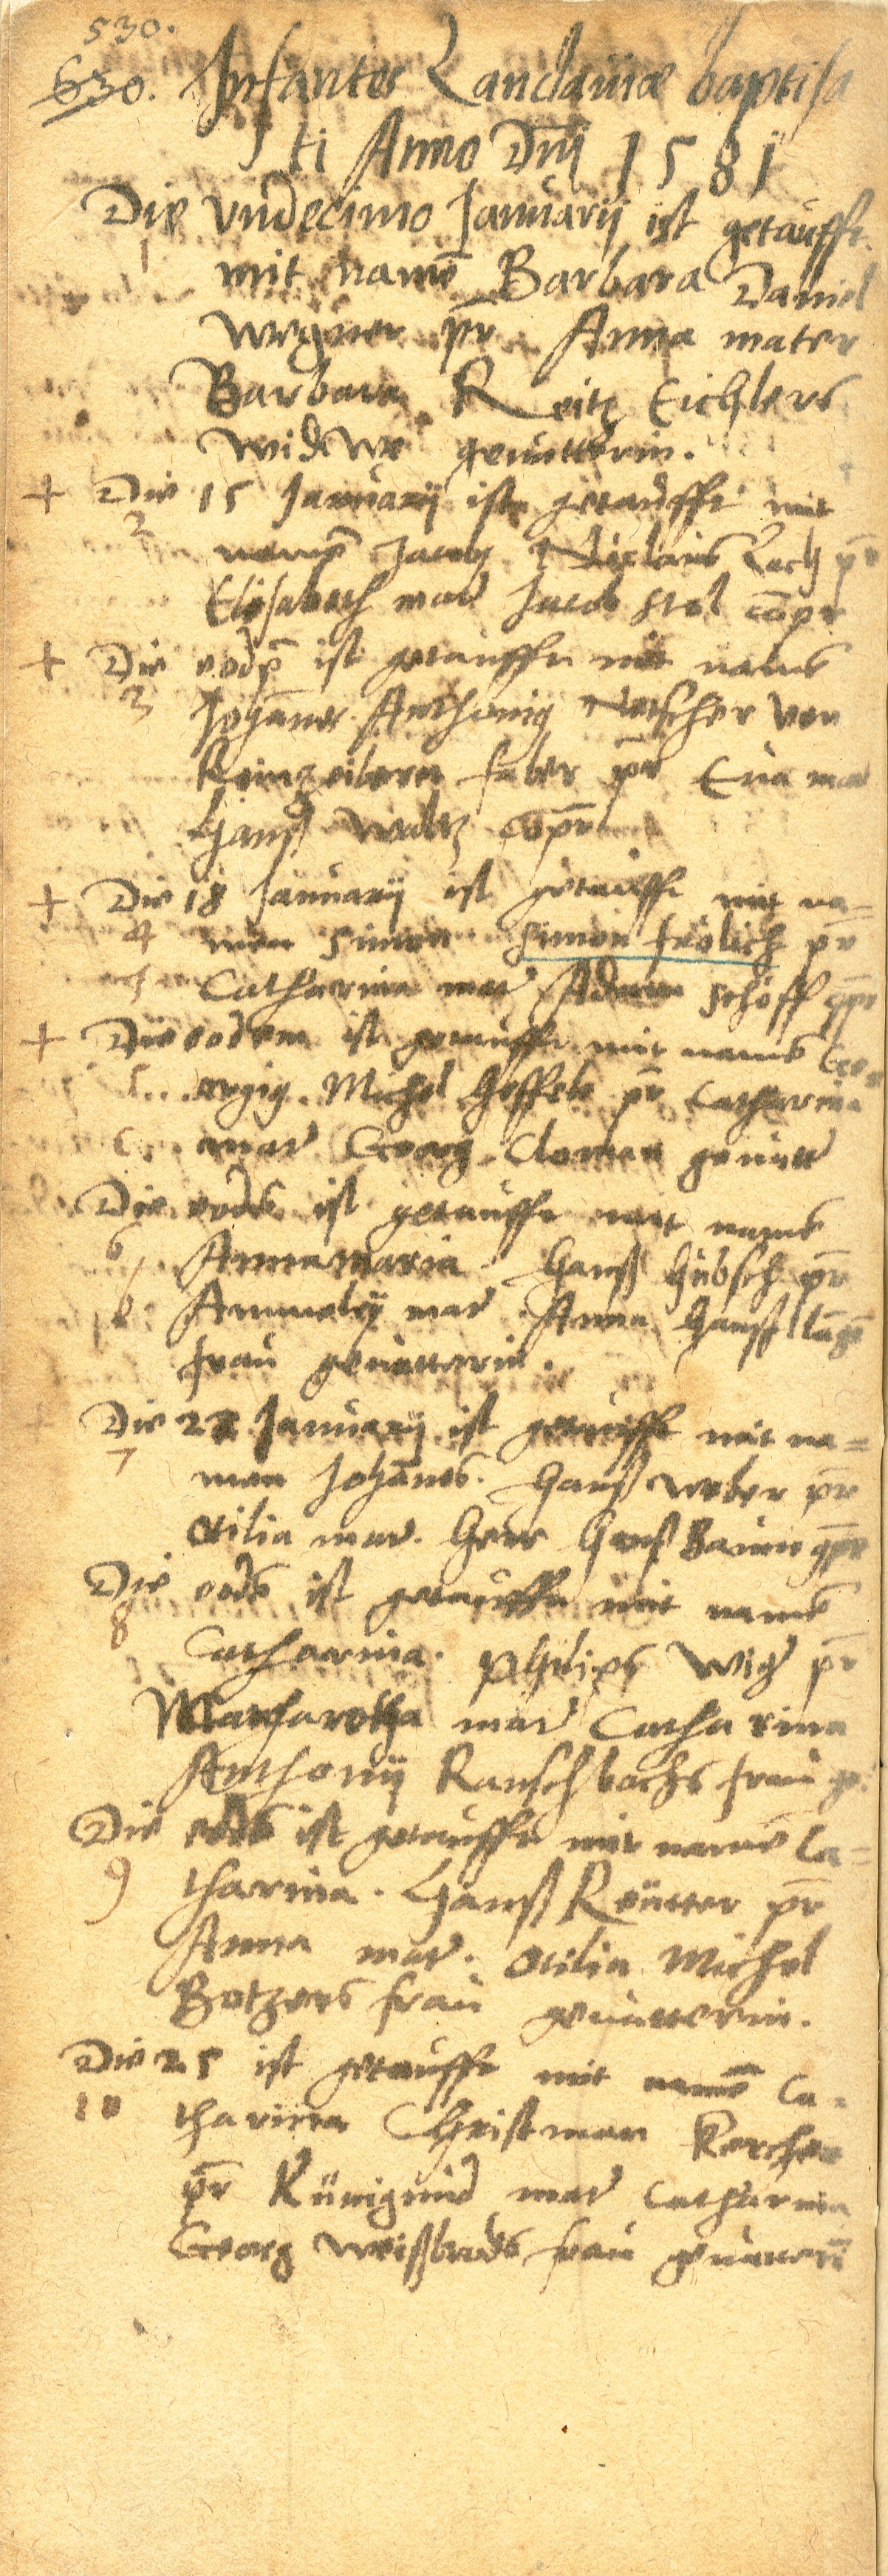 530.
630. Infantes Landaviae baptisa
ti Anno Dnj 1581
Die vndecimo Januarij ist getaufft
1 mit namē Barbara Daniel
Wegner pr Anna mater
Barbara Reitz Eichlers
widwe geuatterin.
+ Die 15 Januarij ist getaufft mit
2 namē Jacob Niclaus Lech pr
Elisabeth mad Jacob stol cōpr
+ Die eodē ist getaufft mit namē
3 Johānes Anthonij Netscher von
faber pr Eua mad
Hanß waltz copr
+ Die 18 Januarij ist getaufft mit na=
4 men Simon Simon frölich pr
Catharina mad Adam schöff cpr
+ Die eodem ist getaufft mit namē Geo=
5 rgig Michel Heffele pr Catharina
mad Georg Cloman geuatt
Die eodē ist getaufft mit namē
6 Annamaria Hanß Hübsch pr
Annaeley mad Anna Hanß
frau geuatterin.
Die 22 Januarij ist getaufft mit na=
7 men Johānes. Hanß weber pr
Otilia mad. Herr Hanß Baum cpr
Die eodē ist getaufft mit namē
8 Catharina. Philips Wid pr
Margaretha mad Catharina
Anthonij Ranschbachs frau ge.
Die eodē ist getaufft mit namē Ca=
9 tharina. Hanß Reutter pr
Anna mad. Otilia Michel
Botzers frau geuatterin.
Die 25 ist getaufft mit namē Ca=
10 tharina Christman Kercher
pr Künigund mad Catharina
Georg Weißbrods frau geuatteri